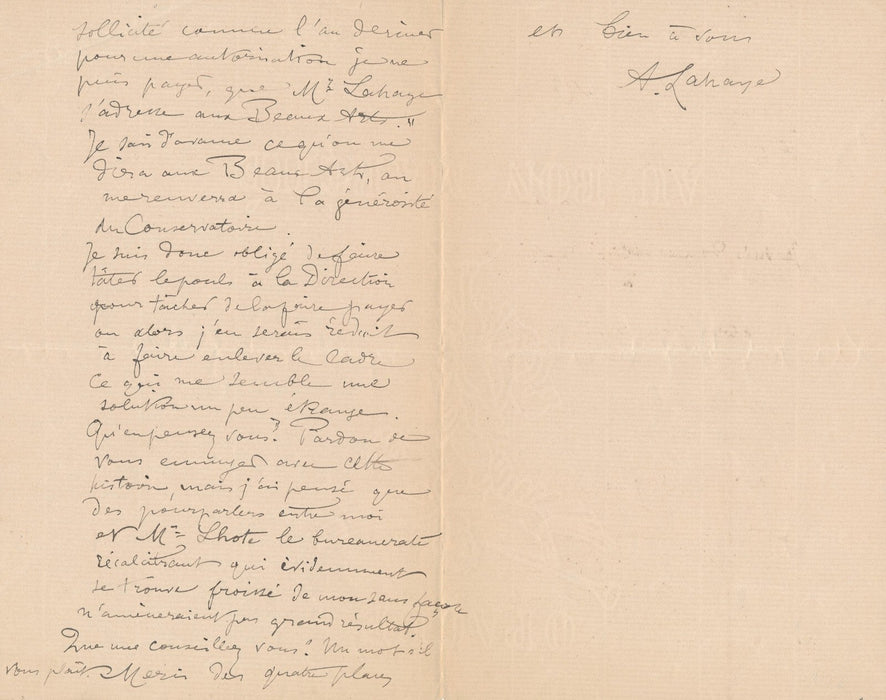 sollicité comme l'an dernier
pour une autorisation je ne
puis payer, que Mr Lahaye
s'adresse aux Beaux Arts."
Je sais d'avance ce qu'on me
dira aux Beaux Arts, on
me renverra à la générosité
du Conservatoire.
Je suis donc obligé de faire
tâter le pouls à la Direction
pour tâcher de la faire payer
ou alors j'en serais réduit
à faire enlever le cadre
ce qui me semble une
solution un peu étrange.
Qu'en pensez vous? Pardon de
vous ennuyer avec cette
histoire, mais j'ai pensé que
des pourparlers entre moi
et Mr Lhote le bureaucrate
récalcitrant qui évidemment
se trouve froissé de mon sans façon
n'amèneraient pas grand résultat.
Que me conseillez vous? Un mot s'il
vous plaît. Merci des quatre places
et bien à vous
A. Lahaye